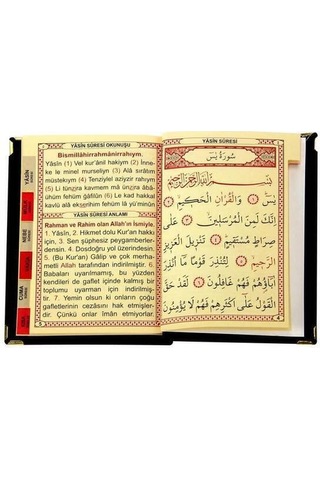 YÂSİN SÛRESİ OKUNUŞU
Bismillâhirrahmânirrahıym.
Yâsîn (1) Vel kur'ânil hakiym (2) İnne-
ke le minel murseliyn (3) Alâ sırâtım
müstekıym (4) Tenziylel aziyzir rahıym
(5) Li tünzira kavmem mâ ünzira âbâ-
ühüm fehüm ğâfilûn (6) Le kad hakkal
kavlü alâ ekserihim fehüm lâ yü'minûn
YÂSİN SÛRESİ ANLAMI
Rahman ve Rahim olan Allah'ın İsmiyle.
1. Yâsîn, 2. Hikmet dolu Kur'an hakkı
için, 3. Sen şüphesiz peygamberler-
densin. 4. Dosdoğru yol üzerindesin.
5. (Bu Kur'an) Gâlip ve çok merha-
metli Allah tarafından indirilmiştir. 6.
Babaları uyarılmamış, bu yüzden
kendileri de gaflet içinde kalmış bir
toplumu uyarman için indirilmiş-
tir. 7. Yemin olsun ki onların çoğu
gafletlerinin cezasını hak etmişler-
dir. Çünkü onlar îman etmiyorlar.
YÂSİN
NEBE
CUMA
YÂSİN SÛRESİ
سُورَةُ يٰسٓ
بِسْمِ اللّٰهِ الرَّحْمٰنِ الرَّحِيمِ
يٰسٓ ﴿١﴾ وَالْقُرْاٰنِ الْحَكِيمِ ﴿٢﴾
اِنَّكَ لَمِنَ الْمُرْسَلِينَ ﴿٣﴾ عَلٰى
صِرَاطٍ مُسْتَقِيمٍ ﴿٤﴾ تَنْزِيلَ الْعَزِيزِ
الرَّحِيمِ ﴿٥﴾ لِتُنْذِرَ قَوْمًا مَا اُنْذِرَ
اٰبَاؤُهُمْ فَهُمْ غَافِلُونَ ﴿٦﴾ لَقَدْ حَقَّ
الْقَوْلُ عَلٰى اَكْثَرِهِمْ فَهُمْ لَا يُؤْمِنُونَ